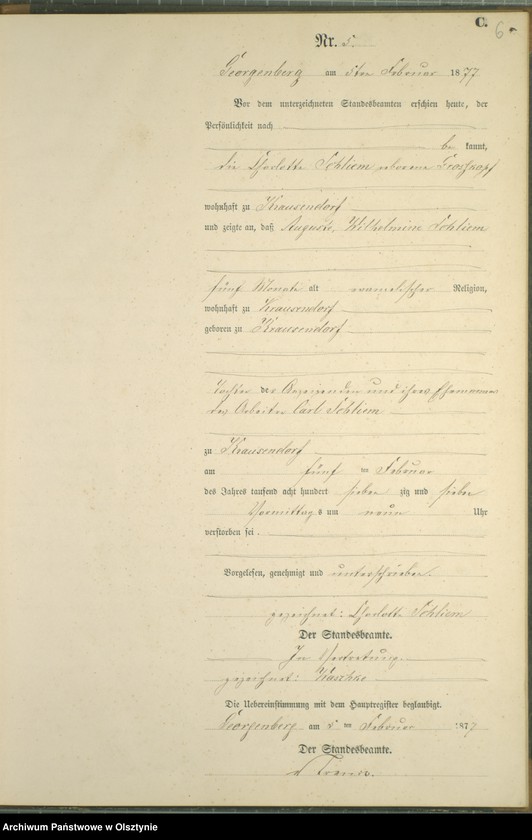 C. 6.
Nr. 5.
Georgenberg am 5ten Februar 1877
Vor dem unterzeichneten Standesbeamten erschien heute, der
Persönlichkeit nach
be kannt,
die Charlotte Schliem geborene Groskopf
wohnhaft zu Krausendorf
und zeigte an, daß Auguste, Wilhelmine Schliem
fünf Monate alt evangelischer Religion,
wohnhaft zu Krausendorf
geboren zu Krausendorf
Tochter der Anzeigenden und ihres Ehemannes
des Arbeiter Carl Schliem
zu Krausendorf
am fünf ten Februar
des Jahres tausend acht hundert sieben zig und sieben
Vormittags um neun Uhr
verstorben sei.
Vorgelesen, genehmigt und unterschrieben.
gezeichnet: Charlotte Schliem
Der Standesbeamte.
In Vertretung
gezeichnet: Kaschke
Die Uebereinstimmung mit dem Hauptregister beglaubigt.
Georgenberg am 5 ten Februar 1877
Der Standesbeamte.
Archiwum Państwowe w Olsztynie